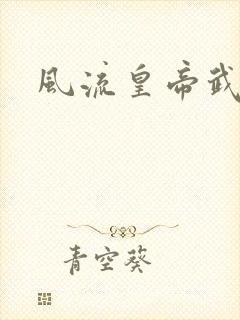 風流皇帝武
青空葵